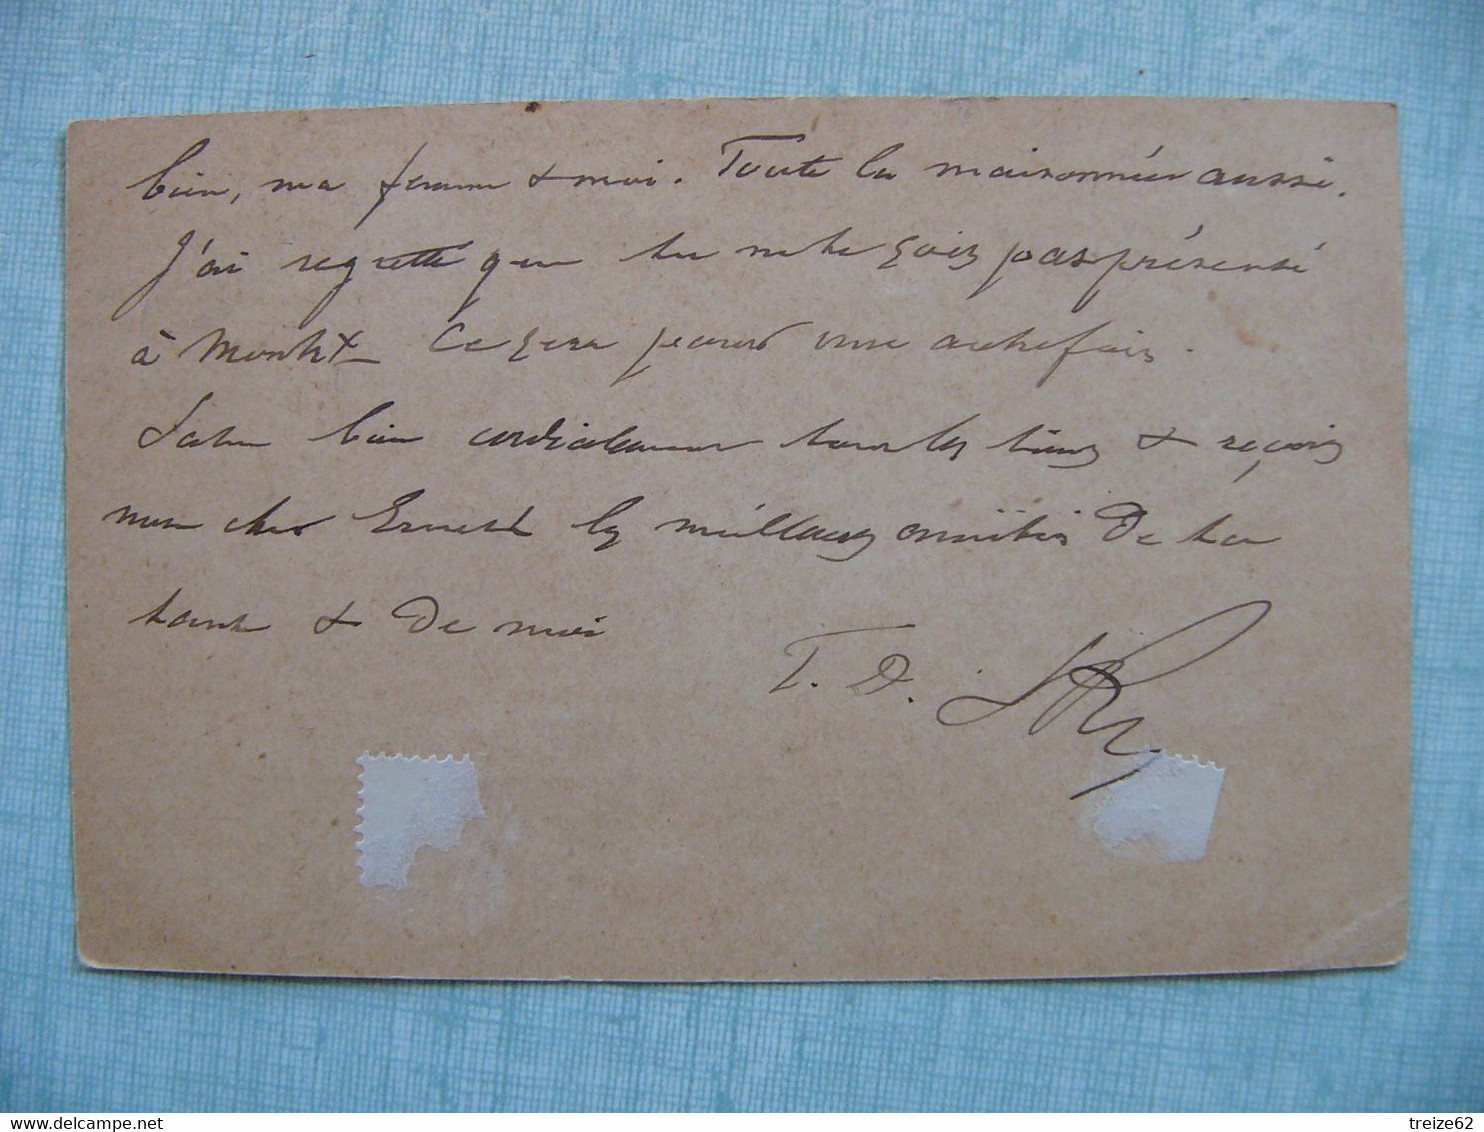 bien, ma femme & moi. Toute la maisonnée aussi.
J'ai regretté que tu ne te sois pas présenté
à . Ce sera pour une autre fois.
Salue bien cordialement tous les tiens & reçois
mon cher Ernest les meilleures amitiés de ta
tante & de moi
T. D.
delcampe.net
treize62